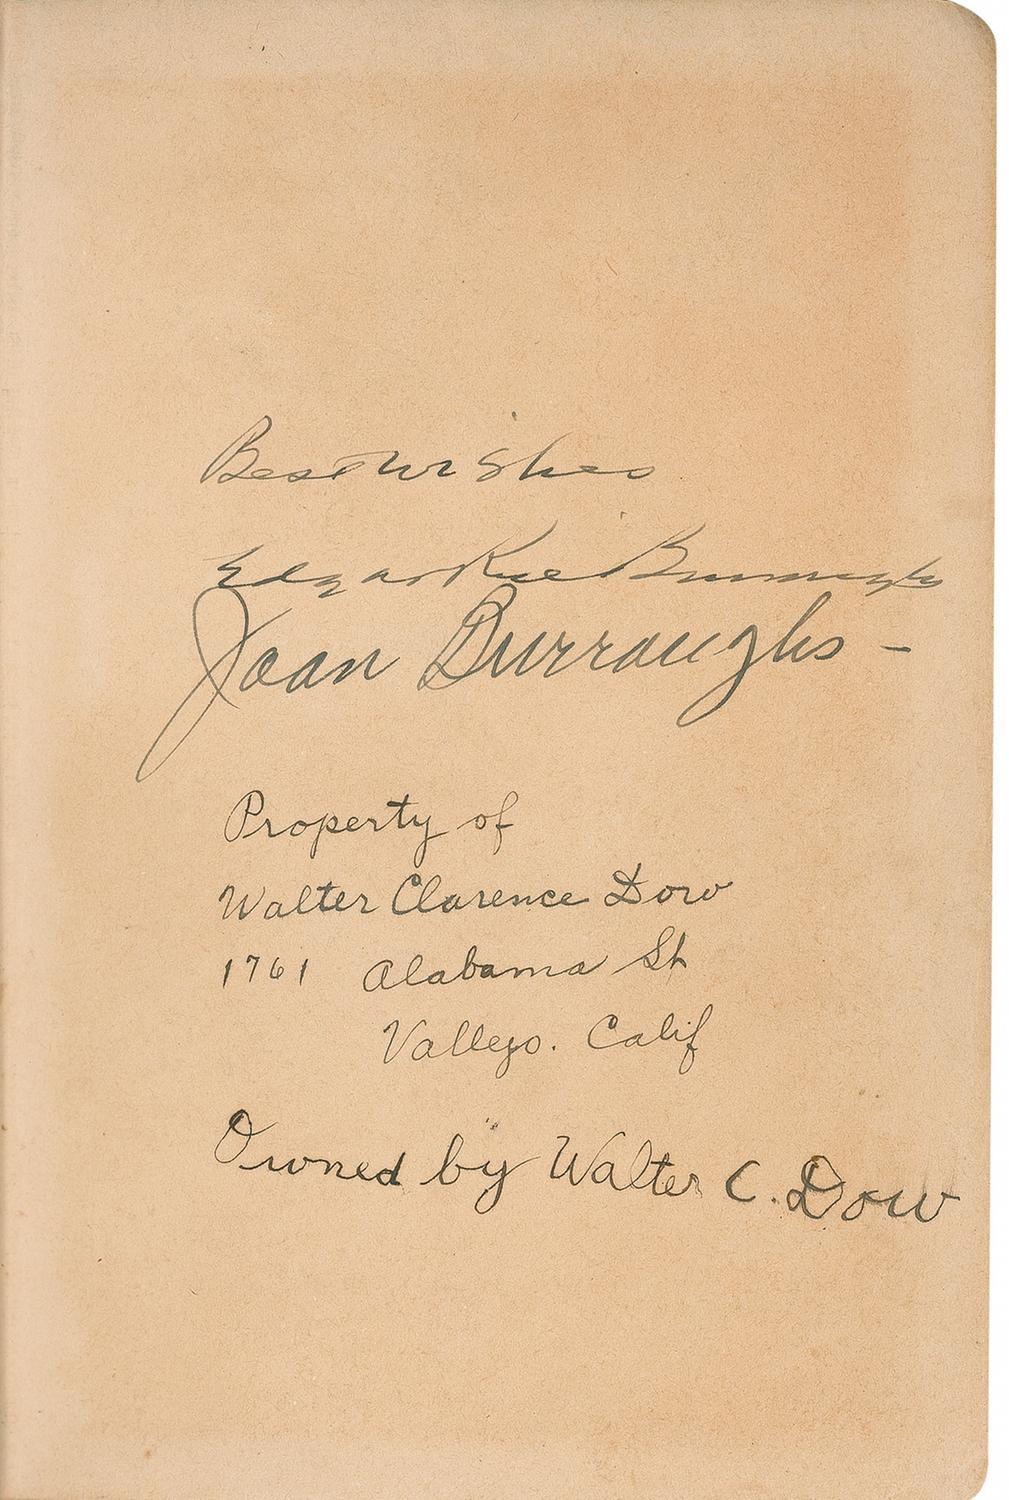 Best wishes
Edgar Rice Burroughs
Joan Burroughs –
Property of
Walter Clarence Dow
1761 Alabama St
Vallejo. Calif
Owned by Walter C. Dow